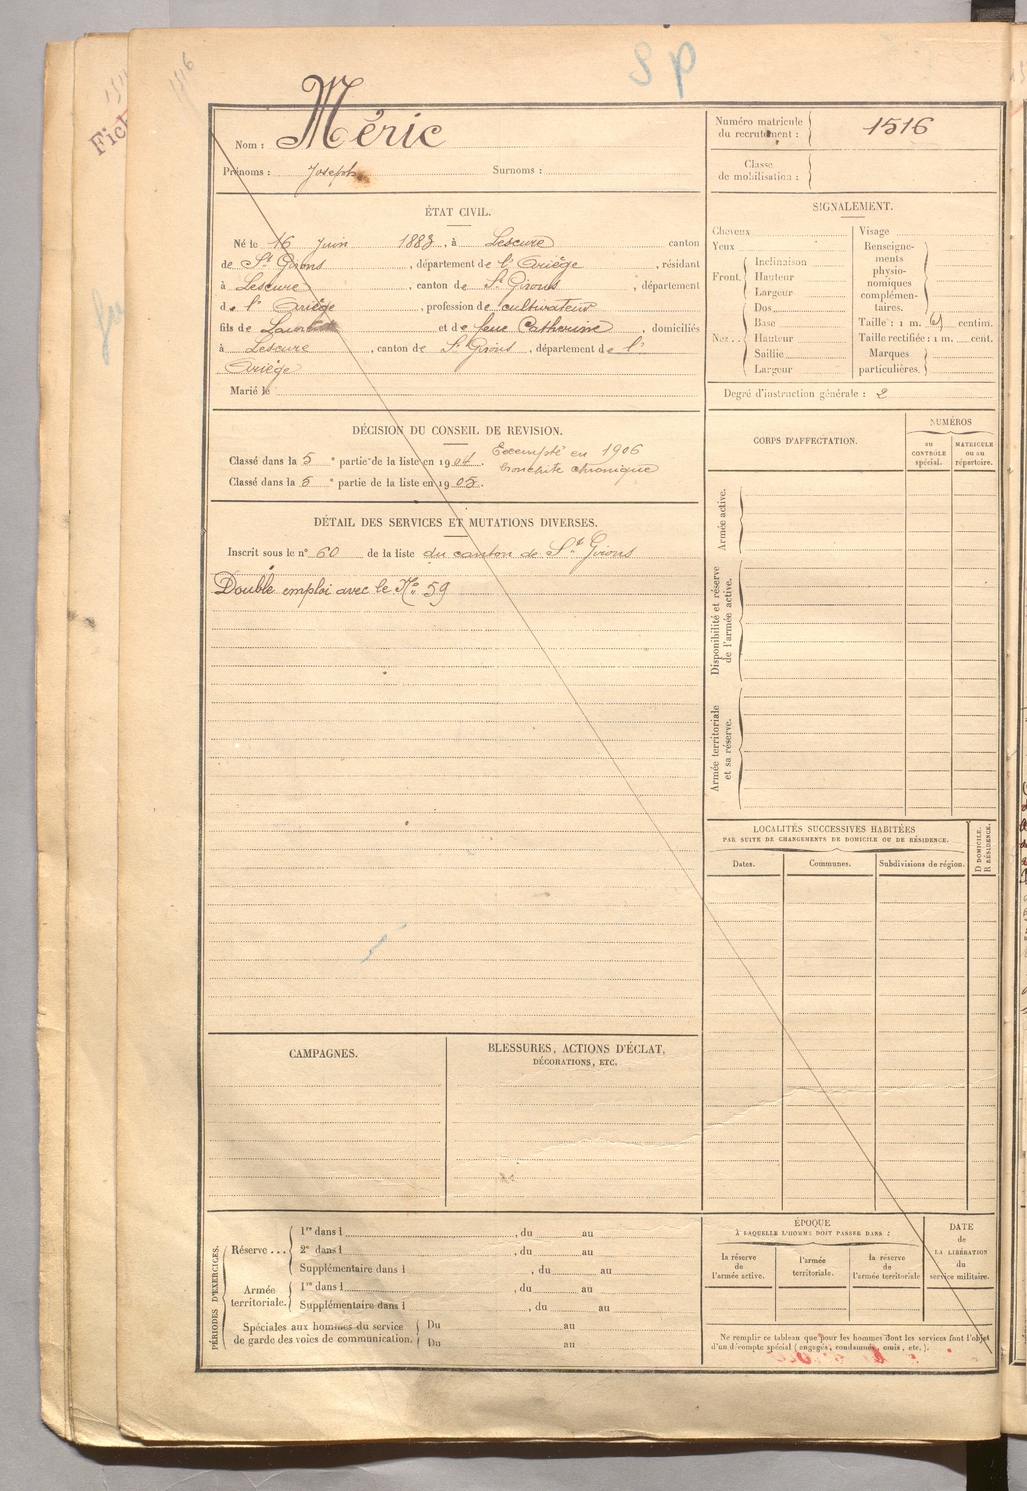 S p
1516
Fich
Nom : Méric
Prénoms : Joseph Surnoms :
Numéro matricule
du recrutement : 1516
Classe
de mobilisation :
ÉTAT CIVIL.
Né le 16 Juin 1883, à Lescure canton
de St Girons, département de l'Ariège, résidant
à Lescure, canton de St Girons, département
de l'Ariège, profession de cultivateur
fils de et de feue Catherine, domiciliés
à Lescure, canton de St Girons, département de l'
Ariège
Marié le
SIGNALEMENT.
Cheveux
Yeux
Front. Inclinaison
Hauteur
Largeur
Nez... Dos
Base
Hauteur
Saillie
Largeur
Visage
Renseigne-
ments
physio-
nomiques
complémen-
taires.
Taille : 1 m. 61 centim.
Taille rectifiée : 1 m. cent.
Marques
particulières.
Degré d'instruction générale : 2
DÉCISION DU CONSEIL DE REVISION.
Classé dans la 5 e partie de la liste en 1904. Exempté en 1906
bronchite chronique
Classé dans la 5 e partie de la liste en 1905.
DÉTAIL DES SERVICES ET MUTATIONS DIVERSES.
Inscrit sous le n° 60 de la liste du canton de St Girons
Double emploi avec le No 59
CORPS D'AFFECTATION.
NUMÉROS
au
CONTRÔLE
spécial.
MATRICULE
ou au
répertoire.
Armée active.
Disponibilité et réserve
de l'armée active.
Armée territoriale
et sa réserve.
LOCALITÉS SUCCESSIVES HABITÉES
PAR SUITE DE CHANGEMENTS DE DOMICILE OU DE RÉSIDENCE.
Dates.
Communes.
Subdivisions de région.
D DOMICILE.
R RÉSIDENCE.
CAMPAGNES.
BLESSURES, ACTIONS D'ÉCLAT,
DÉCORATIONS, ETC.
PÉRIODES D'EXERCICES.
Réserve ... 1re dans l , du au
2e dans l , du au
Supplémentaire dans l , du au
Armée
territoriale. 1re dans l , du au
Supplémentaire dans l , du au
Spéciales aux hommes du service
de garde des voies de communication. Du au
Du au
ÉPOQUE
À LAQUELLE L'HOMME DOIT PASSER DANS :
la réserve
de
l'armée active.
l'armée
territoriale.
la réserve
de
l'armée territoriale
DATE
de
LA LIBÉRATION
du
service militaire.
Ne remplir ce tableau que pour les hommes dont les services font l'objet
d'un décompte spécial (engagés, condamnés, omis, etc.).